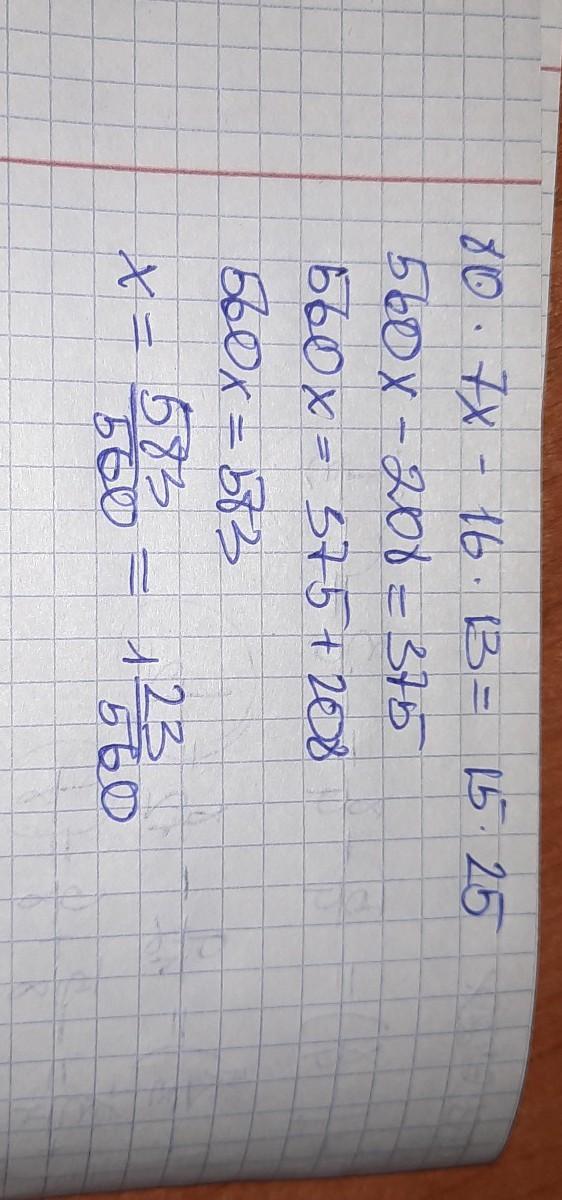 80 · 7x - 16 · 13 = 15 · 25
560x - 208 = 375
560x = 375 + 208
560x = 583
x = 583/560 = 1 23/560